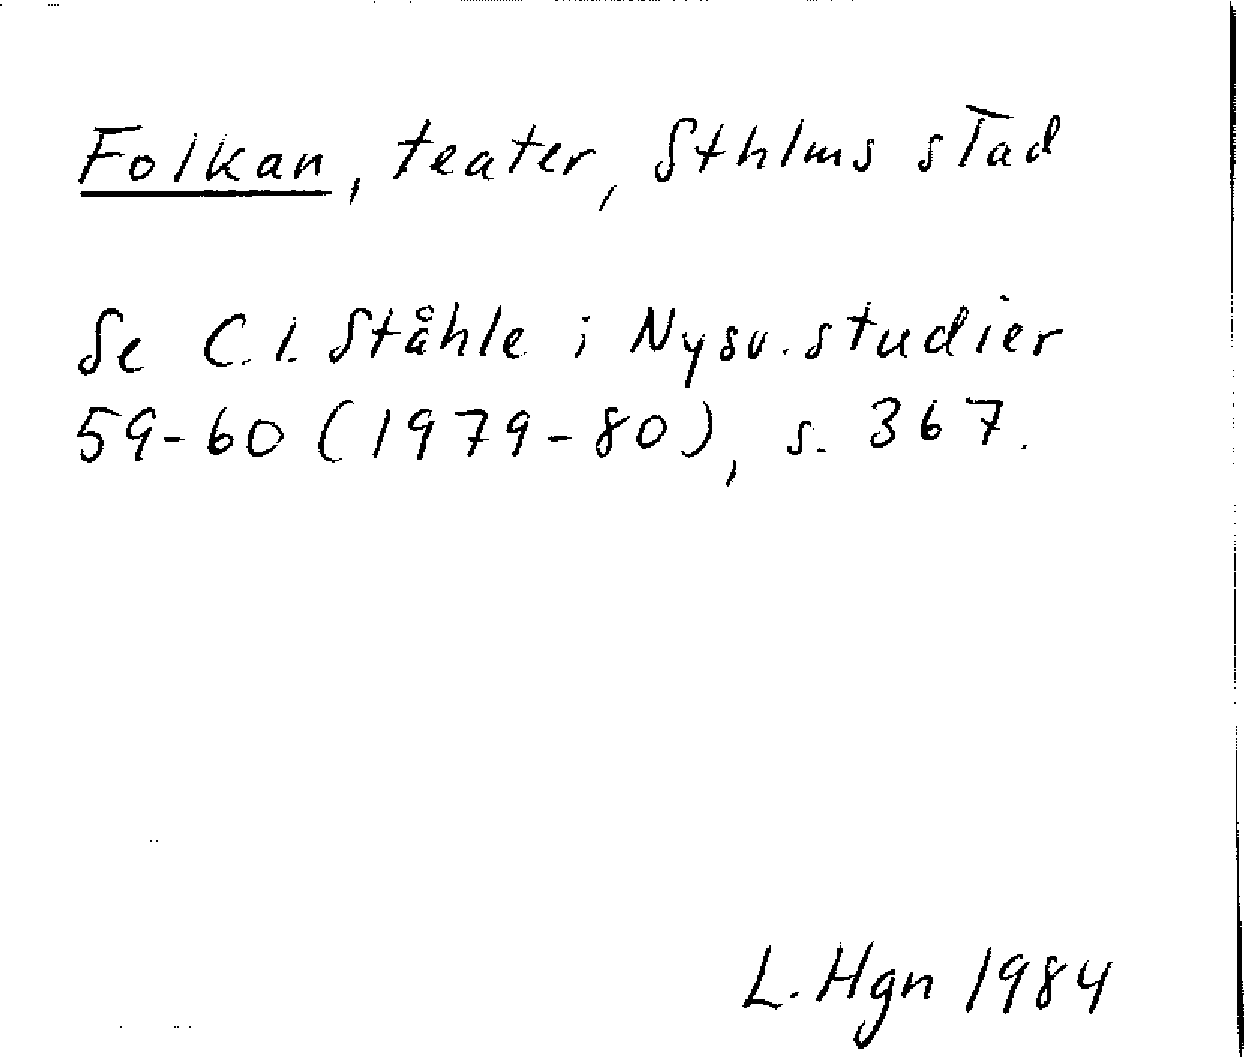 Folkan, teater, Sthlms stad
Se C.I. Ståhle i Nysv. studier
59-60 (1979-80), s. 367.
L. Hgn 1984